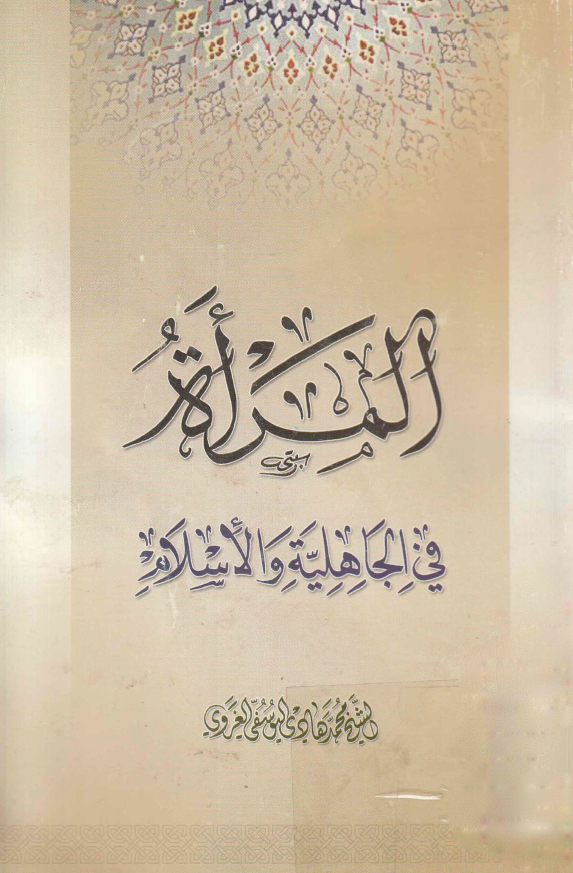 المَرأَةُ
في الجَاهِليَّةِ وَالأسْلَامِ
الشيخ محمد هادي اليوسفي الغروي